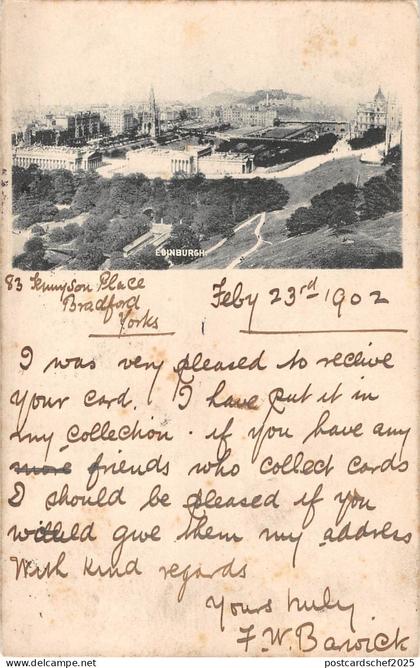 EDINBURGH.
83 Tennyson Place
Bradford
Yorks
Feby 23rd 1902
I was very pleased to receive
your card. I have put it in
my collection. if you have any
more friends who collect cards
I should be pleased if you
would give them my address
With kind regards
Yours truly
F. W. Barwick
delcampe.net
postcardschef2025